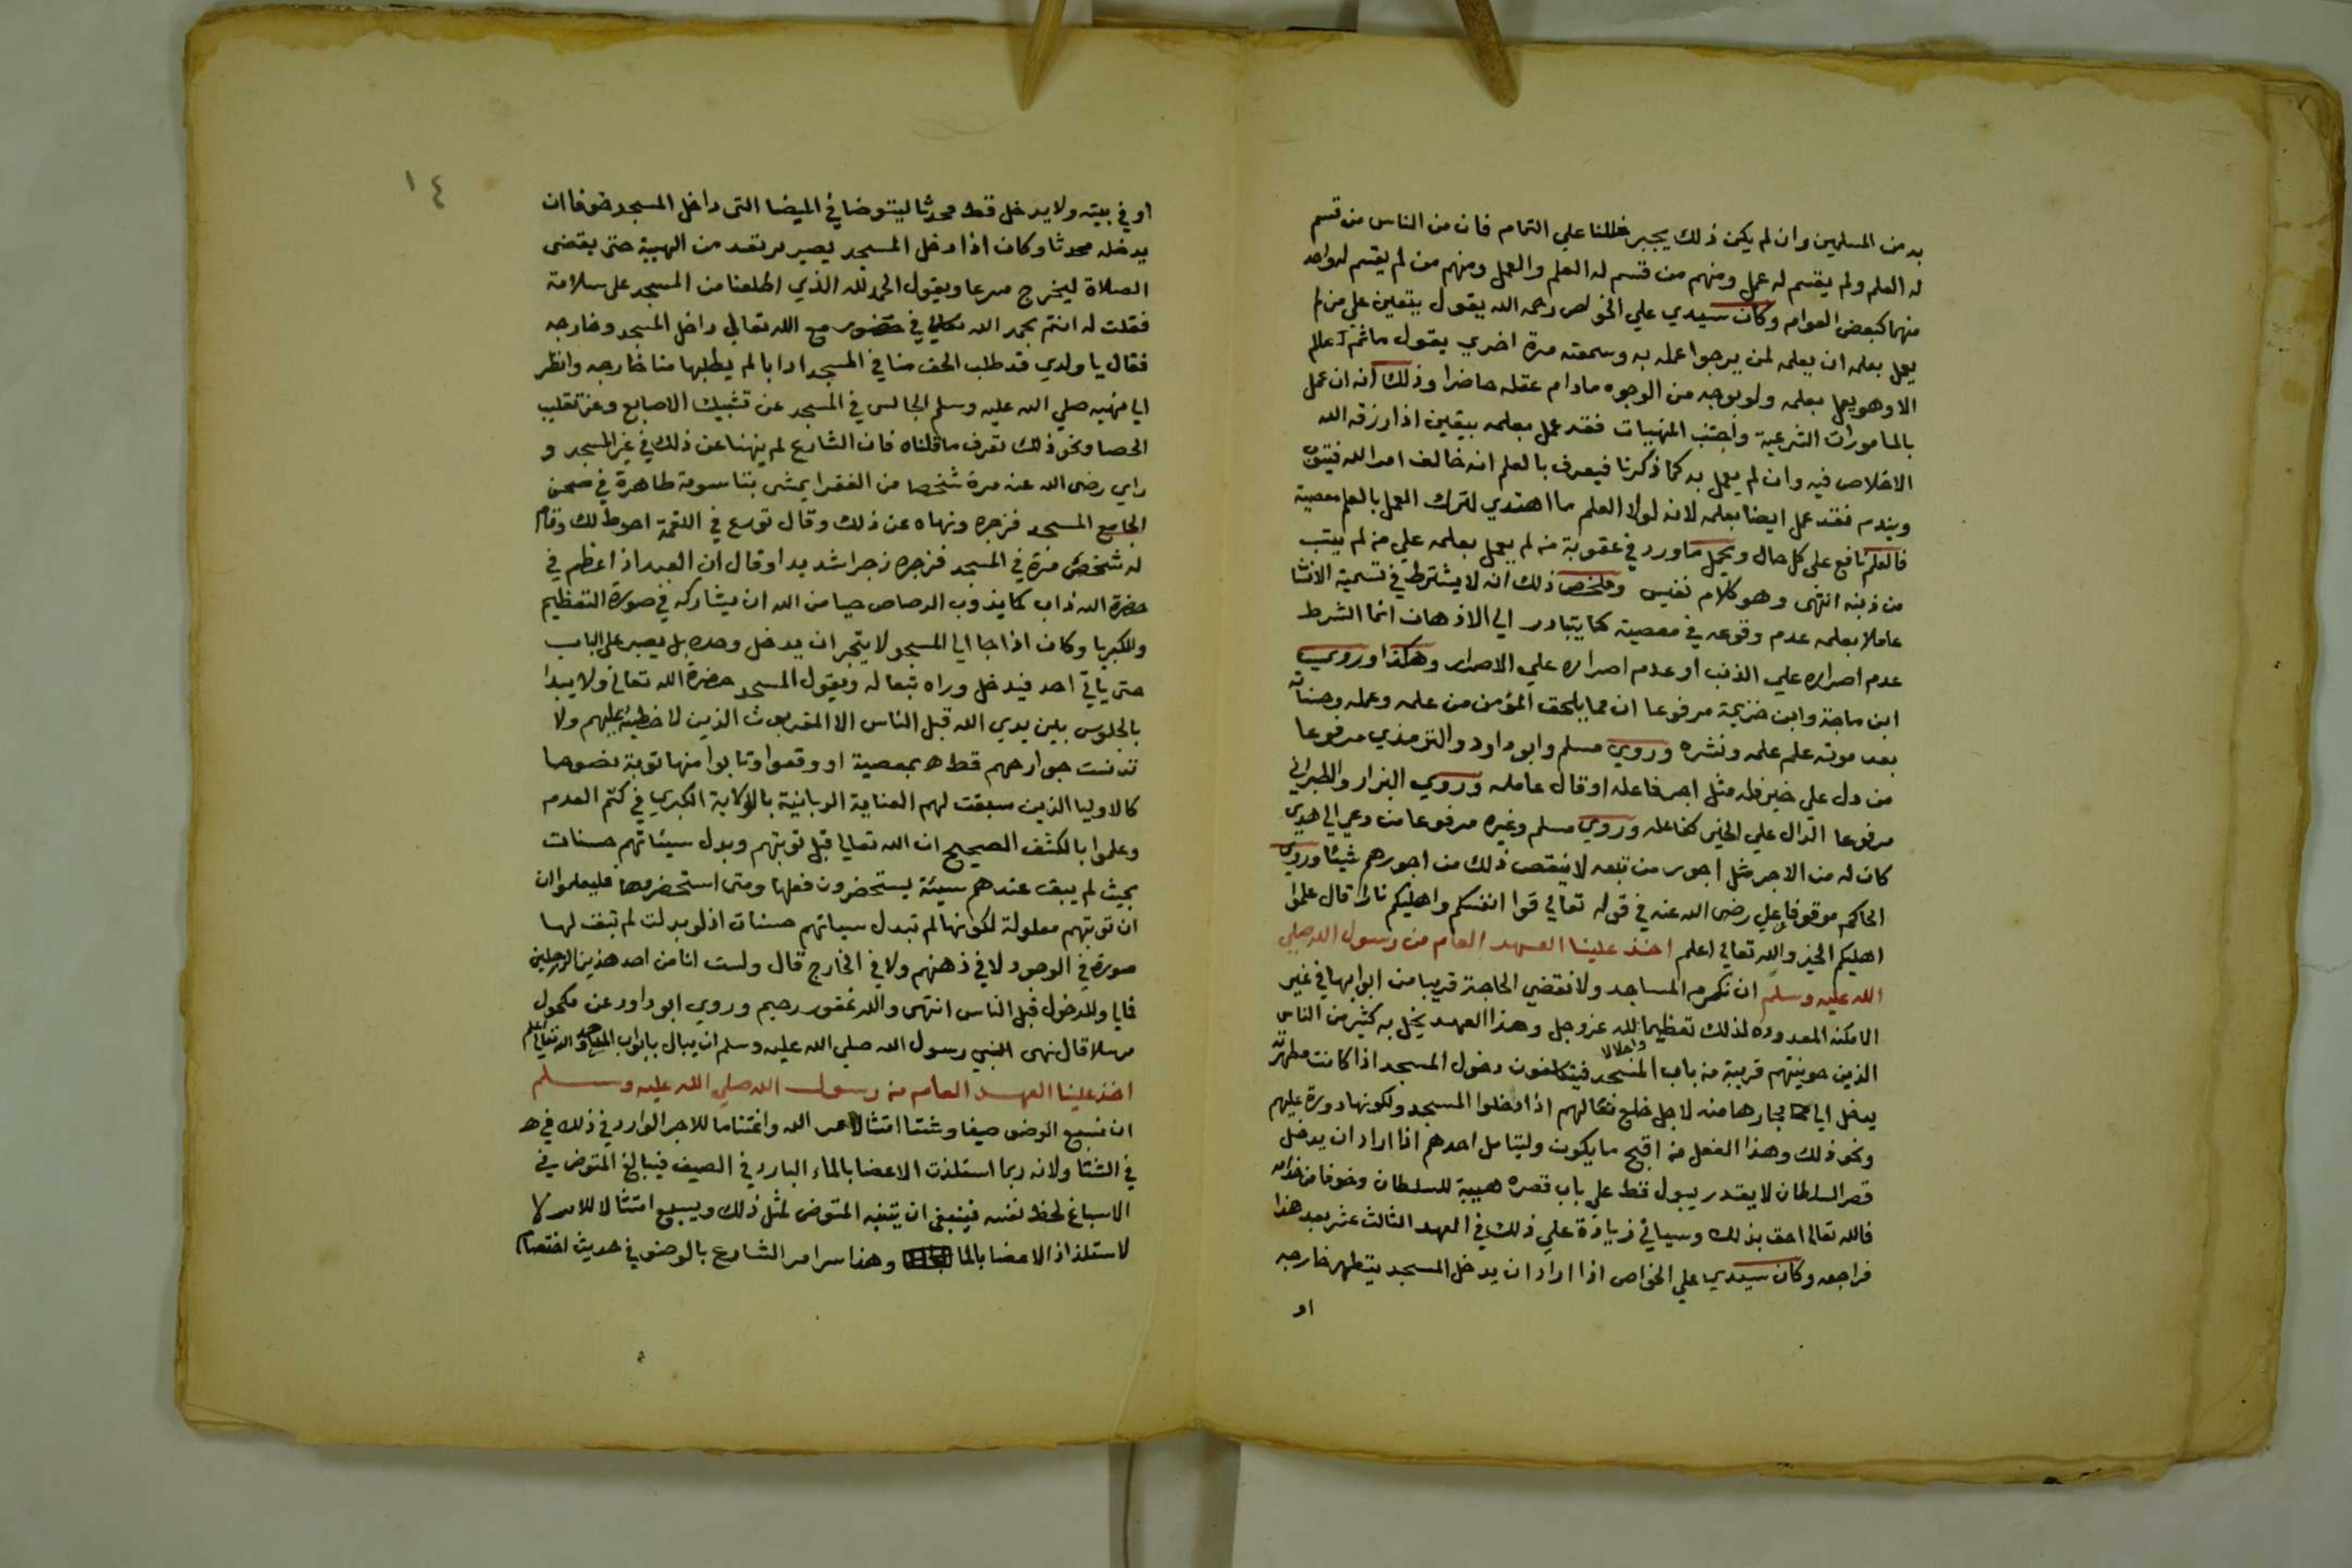 به من المسلمين وان لم يكن ذلك يجبر خللنا علي التمام فان من الناس من قسم
له العلم ولم يقسم له عمل ومنهم من قسم له العلم والعمل ومنهم من لم يقسم له واحد
منهما كبعض العوام وكان سيدي علي الخواص رحمه الله يقول يتعين علي من لم
يعمل بعلمه ان يعلمه لمن يرجوا عمله به وسمعته مرة اخري يقول ما ثم عالم
الا وهو يعمل بعلمه ولو بوجه من الوجوه مادام عقله حاضرا وذلك انه ان عمل
بالمامورات الشرعية واجتنب المنهيات فقد عمل بعلمه بيقين اذا رزقه الله
الاخلاص فيه وان لم يعمل به كما ذكرنا فيعرف بالعلم انه خالف امر الله فيتوب
ويندم فقد عمل ايضا بعلمه لانه لولا العلم ما اهتدي لترك العمل بالعلم معصية
فالعلم نافع على كل حال ويحمل ما ورد في عقوبة من لم يعمل بعلمه علي من لم يتب
من ذنبه انتهى وهو كلام نفيس وملخص ذلك انه لا يشترط في تسمية الانسا
عاملا بعلمه عدم وقوعه في معصية كما يتبادر الي الاذهان انما الشرط
عدم اصراره علي الذنب او عدم اصراره علي الاصرار وهكذا وروي
ابن ماجة وابن خزيمة مرفوعا ان مما يلحق المؤمن من علمه وعمله وحسناته
بعد موته علم علمه ونشره وروي مسلم وابو داود والترمذي مرفوعا
من دل علي خير فله مثل اجر فاعله او قال عامله وروي البزار والطبراني
مرفوعا الدال علي الخير كفاعله وروي مسلم وغيره مرفوعا من دعي الي هدي
كان له من الاجر مثل اجور من تبعه لا ينقص ذلك من اجورهم شيئا وروي
الحاكم موقوفا علي رضى الله عنه في قوله تعالي قوا انفسكم واهليكم نارا قال علموا
اهليكم الخير والله تعالي اعلم اخذ علينا العهد العام من رسول الله صلي
الله عليه وسلم ان نكرم المساجد ولا نقضي الحاجة قريبا من ابوابها في غير
الامكنه المعدوده لذلك تعظيما لله عز وجل وهذا العهد يخل به كثير من الناس
واجلالا
الذين حوينتهم قريبة من باب المسجد فيتكلفون دخول المسجد اذا كانت مطهرته
يدخل اي مجازها منه لاجل خلع نعالهم اذا دخلوا المسجد ولكونها دورة عليهم
ونحو ذلك وهذا الفعل من اقبح ما يكون وليتامل احدهم اذا اراد ان يدخل
قصر السلطان لا يقدر يبول قط علي باب قصره هيبة للسلطان وخوفا من خدامه
فالله تعالي احق بذلك وسياتي زيادة علي ذلك في العهد الثالث عشر بعد هذا
فراجعه وكان سيدي علي الخواص اذا اراد ان يدخل المسجد يتطهر خارجه
او
١٤
او في بيته ولا يدخل قط محدثا ليتوضا في الميضا التى داخل المسجد خوفا ان
يدخله محدثا وكان اذا دخل المسجد يصير يرتعد من الهيبة حتى يقضى
الصلاة ليخرج مسرعا ويقول الحمد لله الذي اطلعنا من المسجد على سلامة
فقلت له انتم بحمد الله في حضور مع الله تعالي داخل المسجد وخارجه
فقال يا ولدي قد طلب الحق منا في المسجد ادابا لم يطلبها منا خارجه وانظر
الي نهيه صلي الله عليه وسلم الجالس في المسجد عن تشبيك الاصابع وعن تقليب
الحصا ونحو ذلك تعرف ما قلناه فان الشارع لم ينهنا عن ذلك في غير المسجد و
راي رضى الله عنه مرة شخصا من الفقرا يمشى بتاسومة طاهرة في صحن
الجامع المسجد فزجره ونهاه عن ذلك وقال تورع في اللقمة احوط لك وقام
له شخص مرة في المسجد فزجره زجرا شديدا وقال ان العبد اذا عظم في
حضرة الله ذاب كما يذوب الرصاص حيا من الله ان يشاركه في صورة التعظيم
والكبريا وكان اذا جا الي المسجد لا يتجرا ان يدخل وحده بل يصبر على الباب
حتى ياتي احد فيدخل وراه تبعا له ويقول المسجد حضرة الله تعالي ولا يبدا
بالجلوس بين يدي الله قبل الناس الا المقربون الذين لا خطيئة عليهم ولا
تدنست جوارحهم قط بمعصية او وقعوا وتابوا منها توبة نصوحا
كالاوليا الذين سبقت لهم العناية الربانية بالولاية الكبري في كتم العدم
وعلموا بالكشف الصحيح ان الله تعالي قبل توبتهم وبدل سيئاتهم حسنات
بحيث لم يبق عندهم سيئة يستحضرون فعلها ومتى استحضروها فليعلموا ان
ان توبتهم معلولة لكونها لم تبدل سياتهم حسنات اذ لو بدلت لم تبق لها
صورة في الوجود لا في ذهنهم ولا في الخارج قال ولست انا من احد هذين الرجلين
فايا وللدخول قبل الناس انتهى والله غفور رحيم وروي ابو داود عن مكحول
مرسلا قال نهى النبي رسول الله صلي الله عليه وسلم ان يبال بابواب المساجد والله تعالي اعلم
اخذ علينا العهد العام من رسول الله صلي الله عليه وسلم
ان نسبغ الوضو صيفا وشتا امتثالا لامر الله واغتناما للاجر الوارد في ذلك في
في الشتا ولانه ربما استلذت الاعضا بالماء البارد في الصيف فيبالغ المتوض في
الاسباغ لحظ نفسه فينبغي ان يتنبه المتوضى لمثل ذلك ويسبغ امتثالا للامر لا
لاستلذاذ الاعضا بالما وهذا سر امر الشارع بالوضو في حديث اختصام